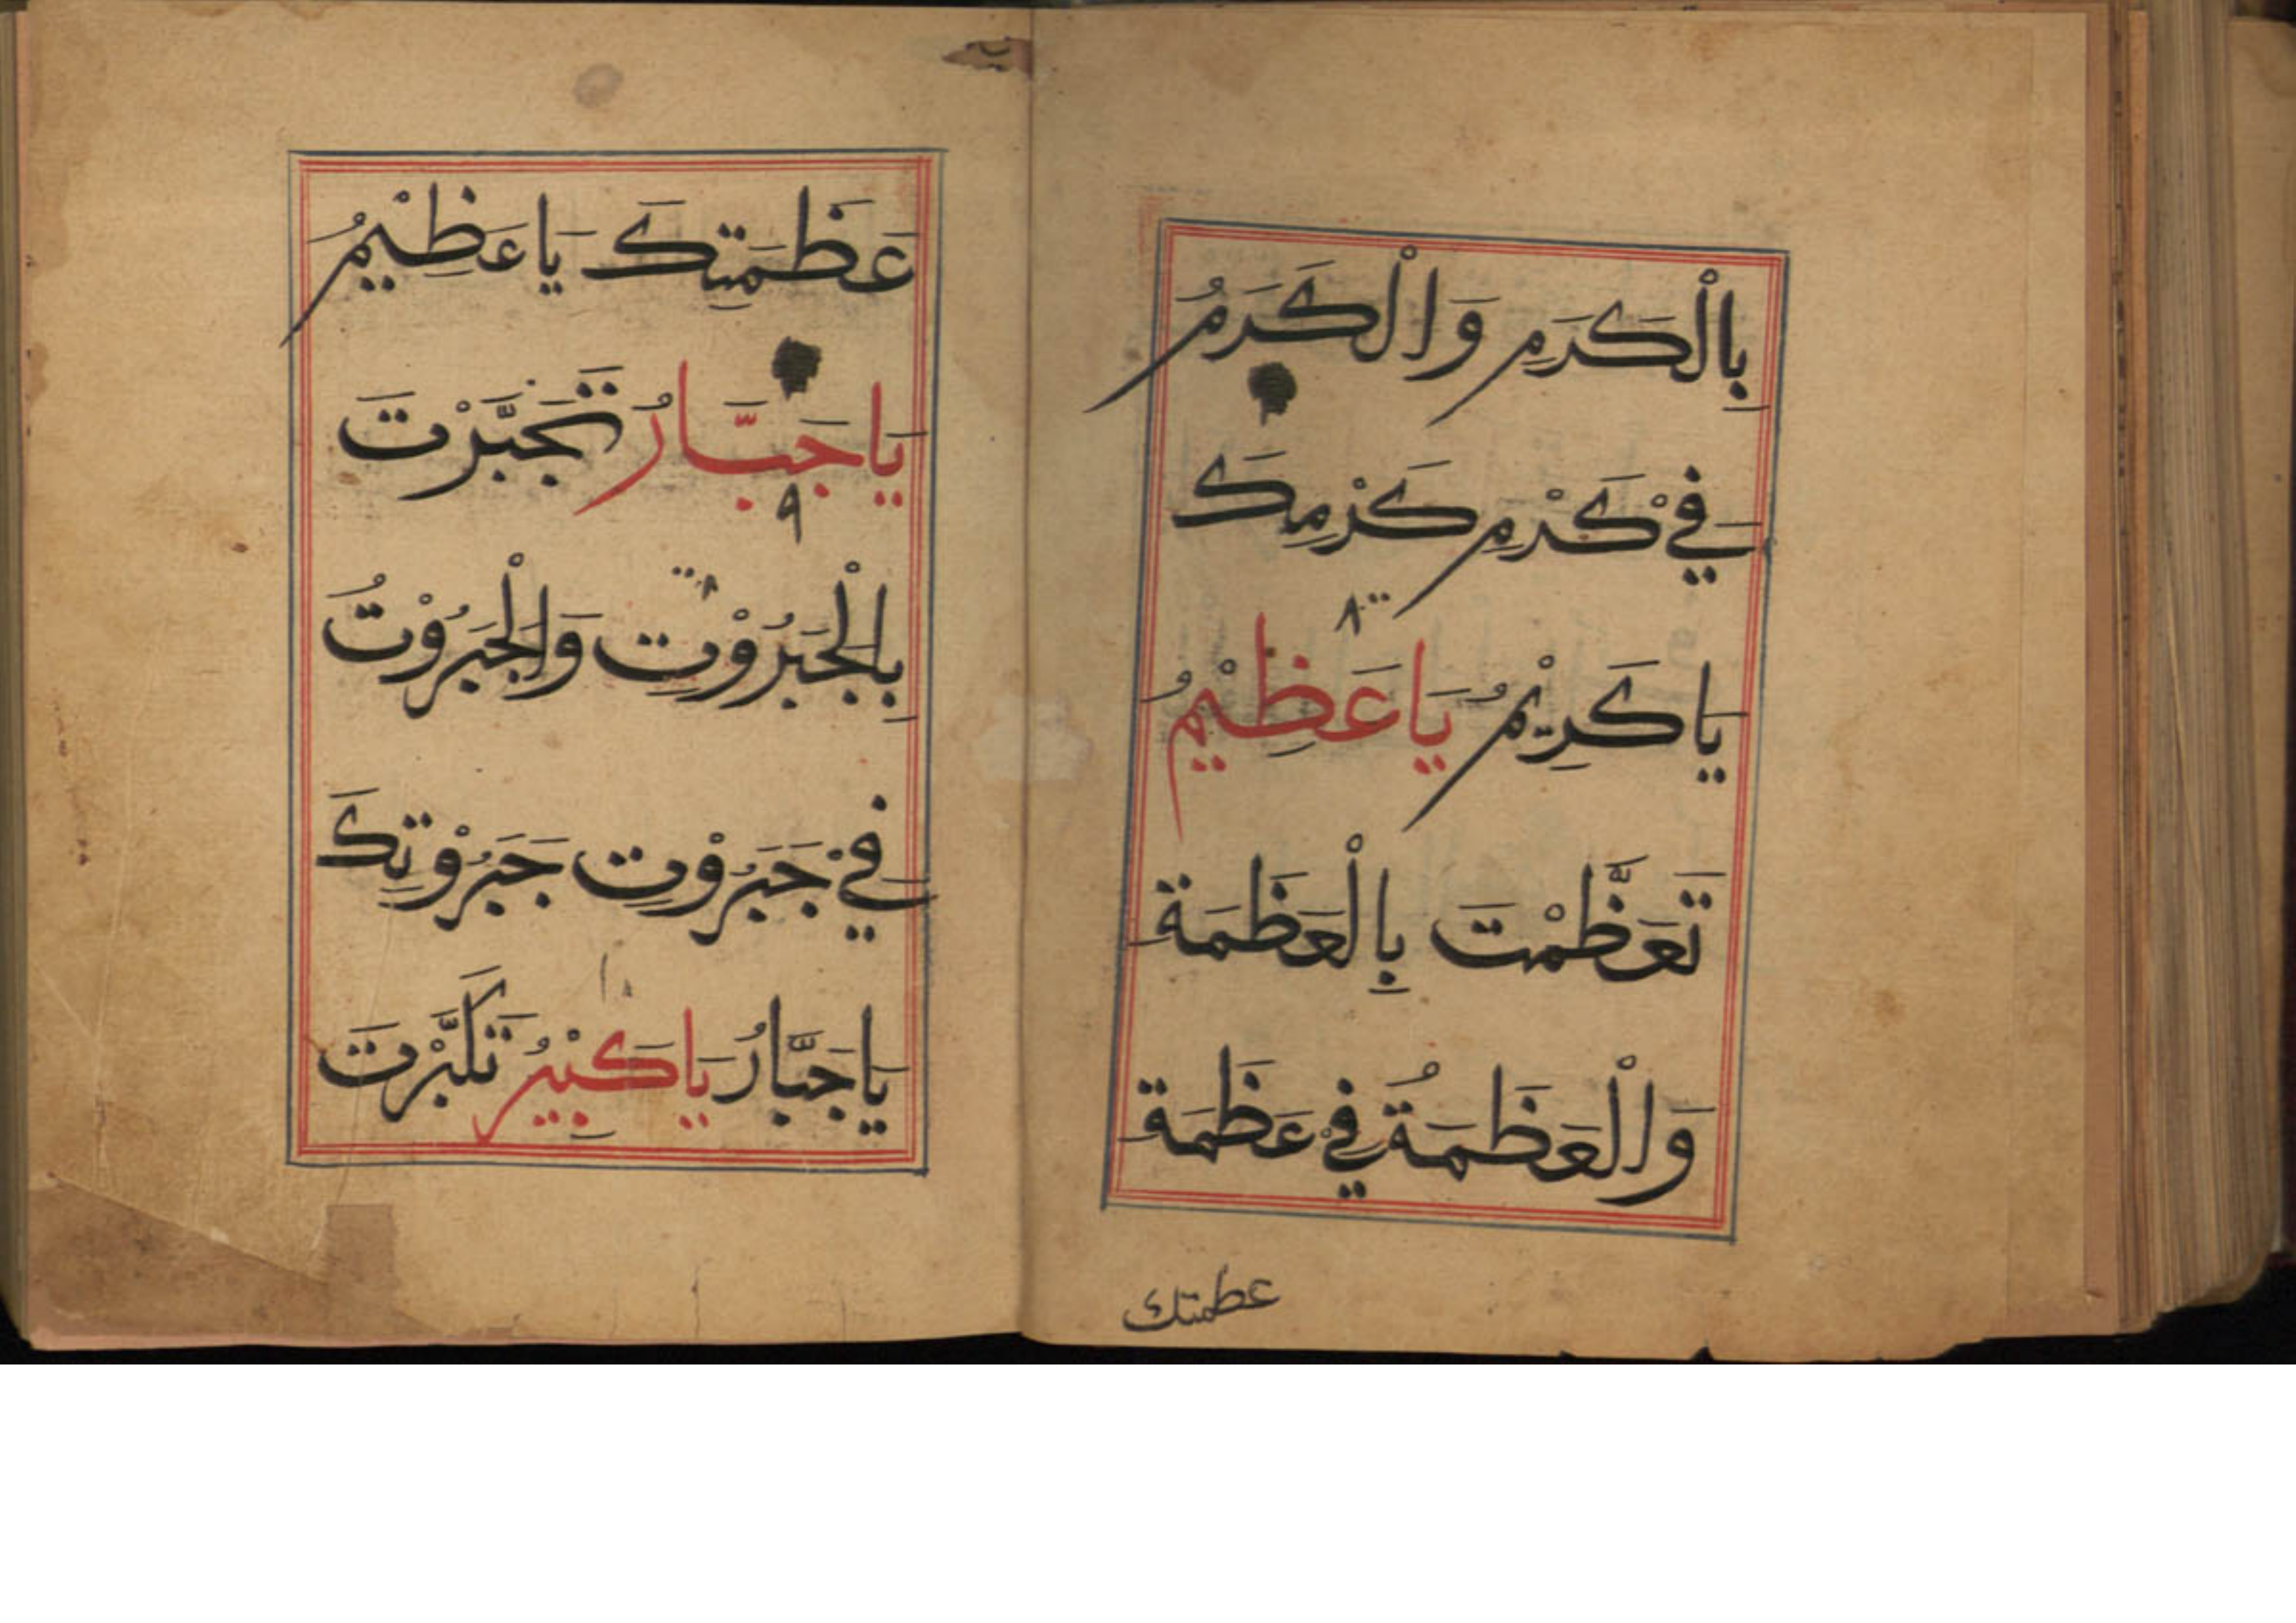 بِالْكَرَمِ وَالْكَرَمُ
فِيْ كَرْمِ كَرْمِكَ
٨
يَا كَرِيْمُ يَا عَظِيْمُ
تَعَظَّمْتَ بِالْعَظَمَةِ
وَالْعَظَمَةُ فِيْ عَظَمَةِ
عظمتك
عَظَمَتِكَ يَا عَظِيْمُ
يَا جَبَّارُ تَجَبَّرْتَ
٩
بِالْجَبَرُوْتِ وَالْجَبَرُوْتُ
فِيْ جَبَرُوْتِ جَبَرُوْتِكَ
يَا جَبَّارُ يَا كَبِيْرُ تَكَبَّرْتَ